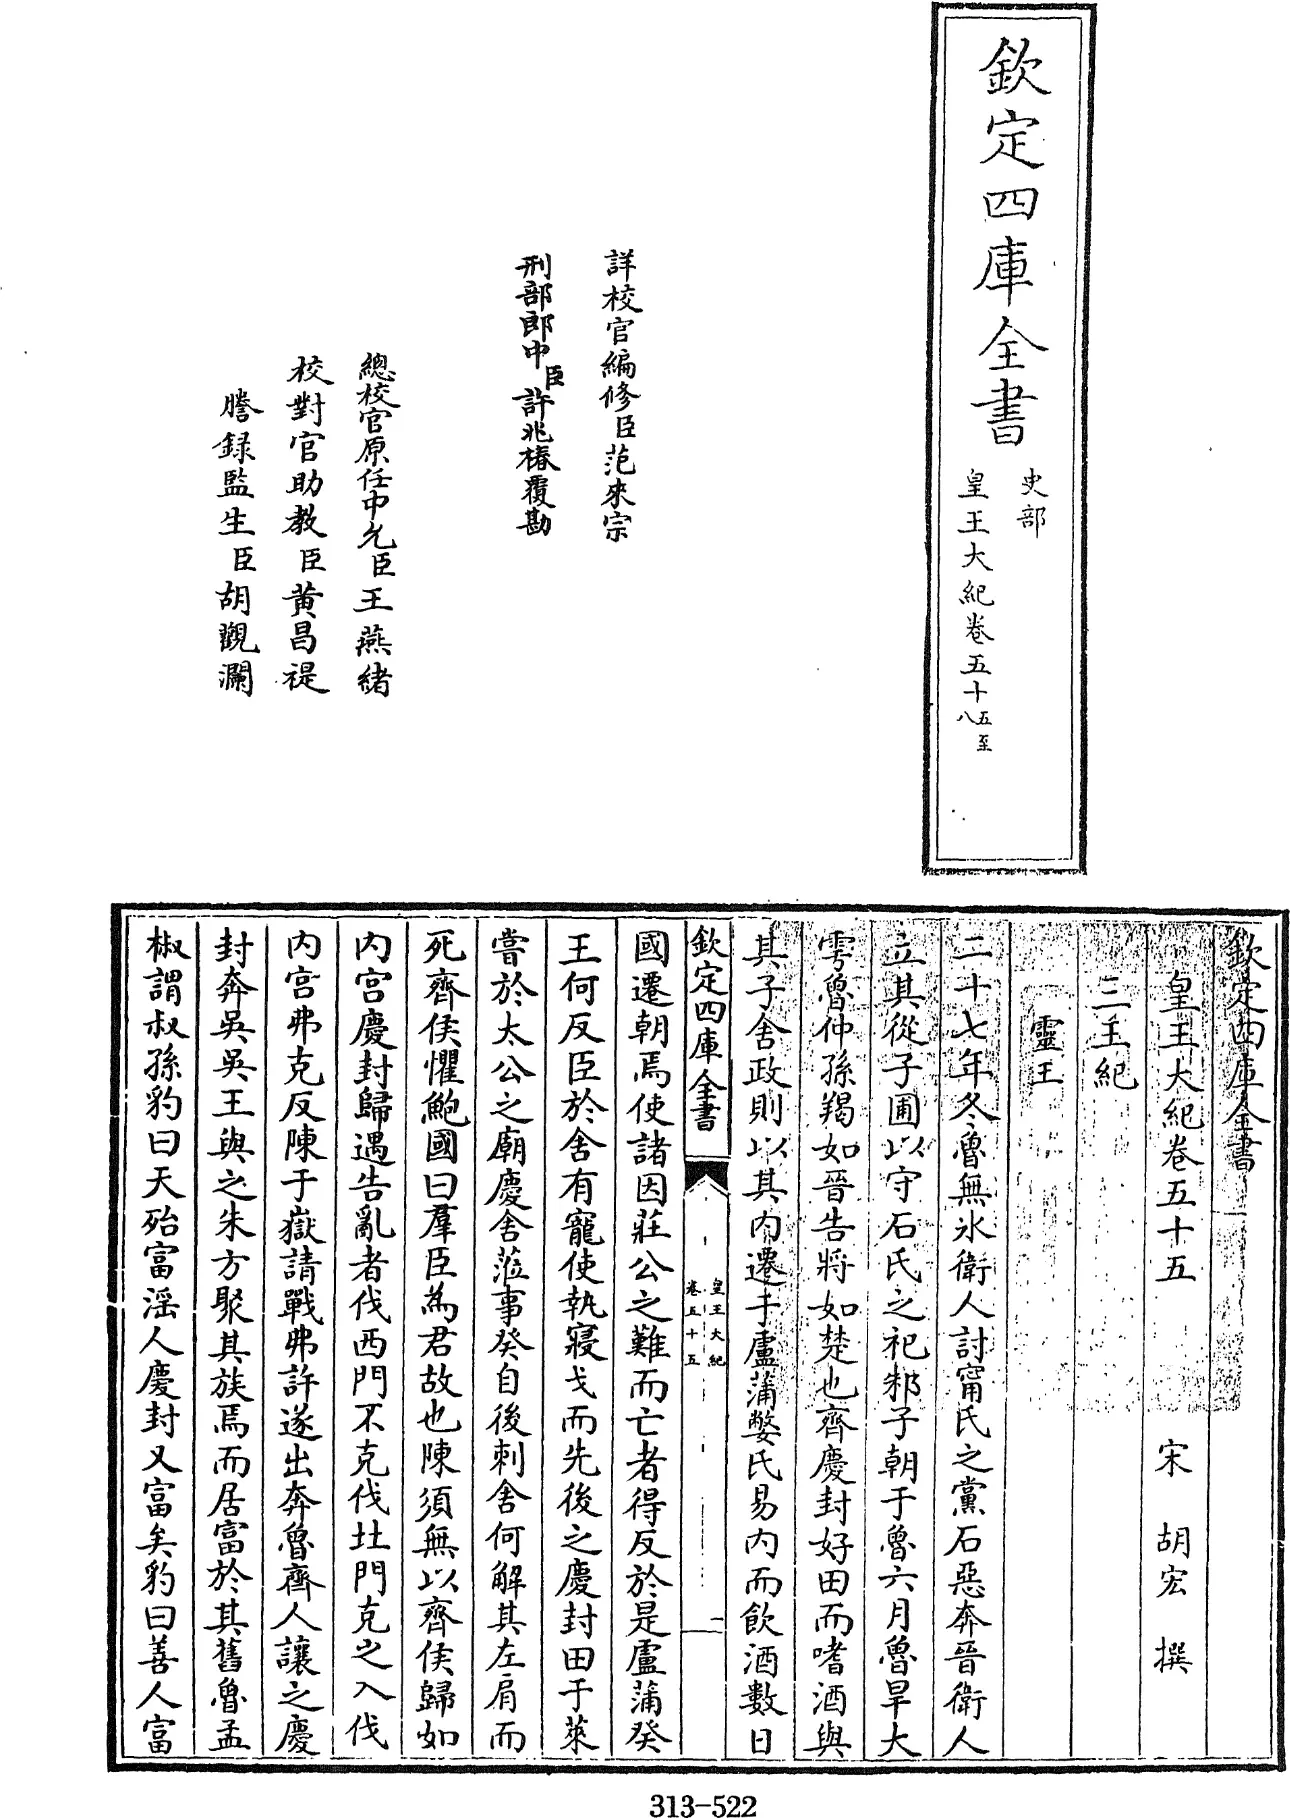 欽定四庫全書
史部
皇王大紀卷五十五至八
詳校官編修臣范來宗
刑部郎中臣許兆椿覆勘
總校官原任中允臣王燕緒
校對官助教臣黄昌禔
謄録監生臣胡觀瀾
欽定四庫全書
皇王大紀卷五十五 宋 胡宏 撰
三王紀
靈王
二十七年冬魯無冰衛人討甯氏之黨石惡奔晉衛人
立其從子圃以守石氏之祀邾子朝于魯六月魯旱大
雩魯仲孫羯如晉告將如楚也齊慶封好田而嗜酒與
其子舍政則以其内遷于盧蒲嫳氏易内而飲酒數日
欽定四庫全書
皇王大紀
卷五十五
一
國遷朝焉使諸因莊公之難而亡者得反於是盧蒲癸
王何反臣於舍有寵使執寢戈而先後之慶封田于萊
嘗於太公之廟慶舍涖事癸自後刺舍何解其左肩而
死齊侯懼鮑國曰羣臣為君故也陳須無以齊侯歸如
内宫慶封歸遇告亂者伐西門不克伐北門克之入伐
内宫弗克反陳于嶽請戰弗許遂出奔魯齊人讓之慶
封奔吳吳王與之朱方聚其族焉而居富於其舊魯孟
椒謂叔孫豹曰天殆富淫人慶封又富矣豹曰善人富
313-522